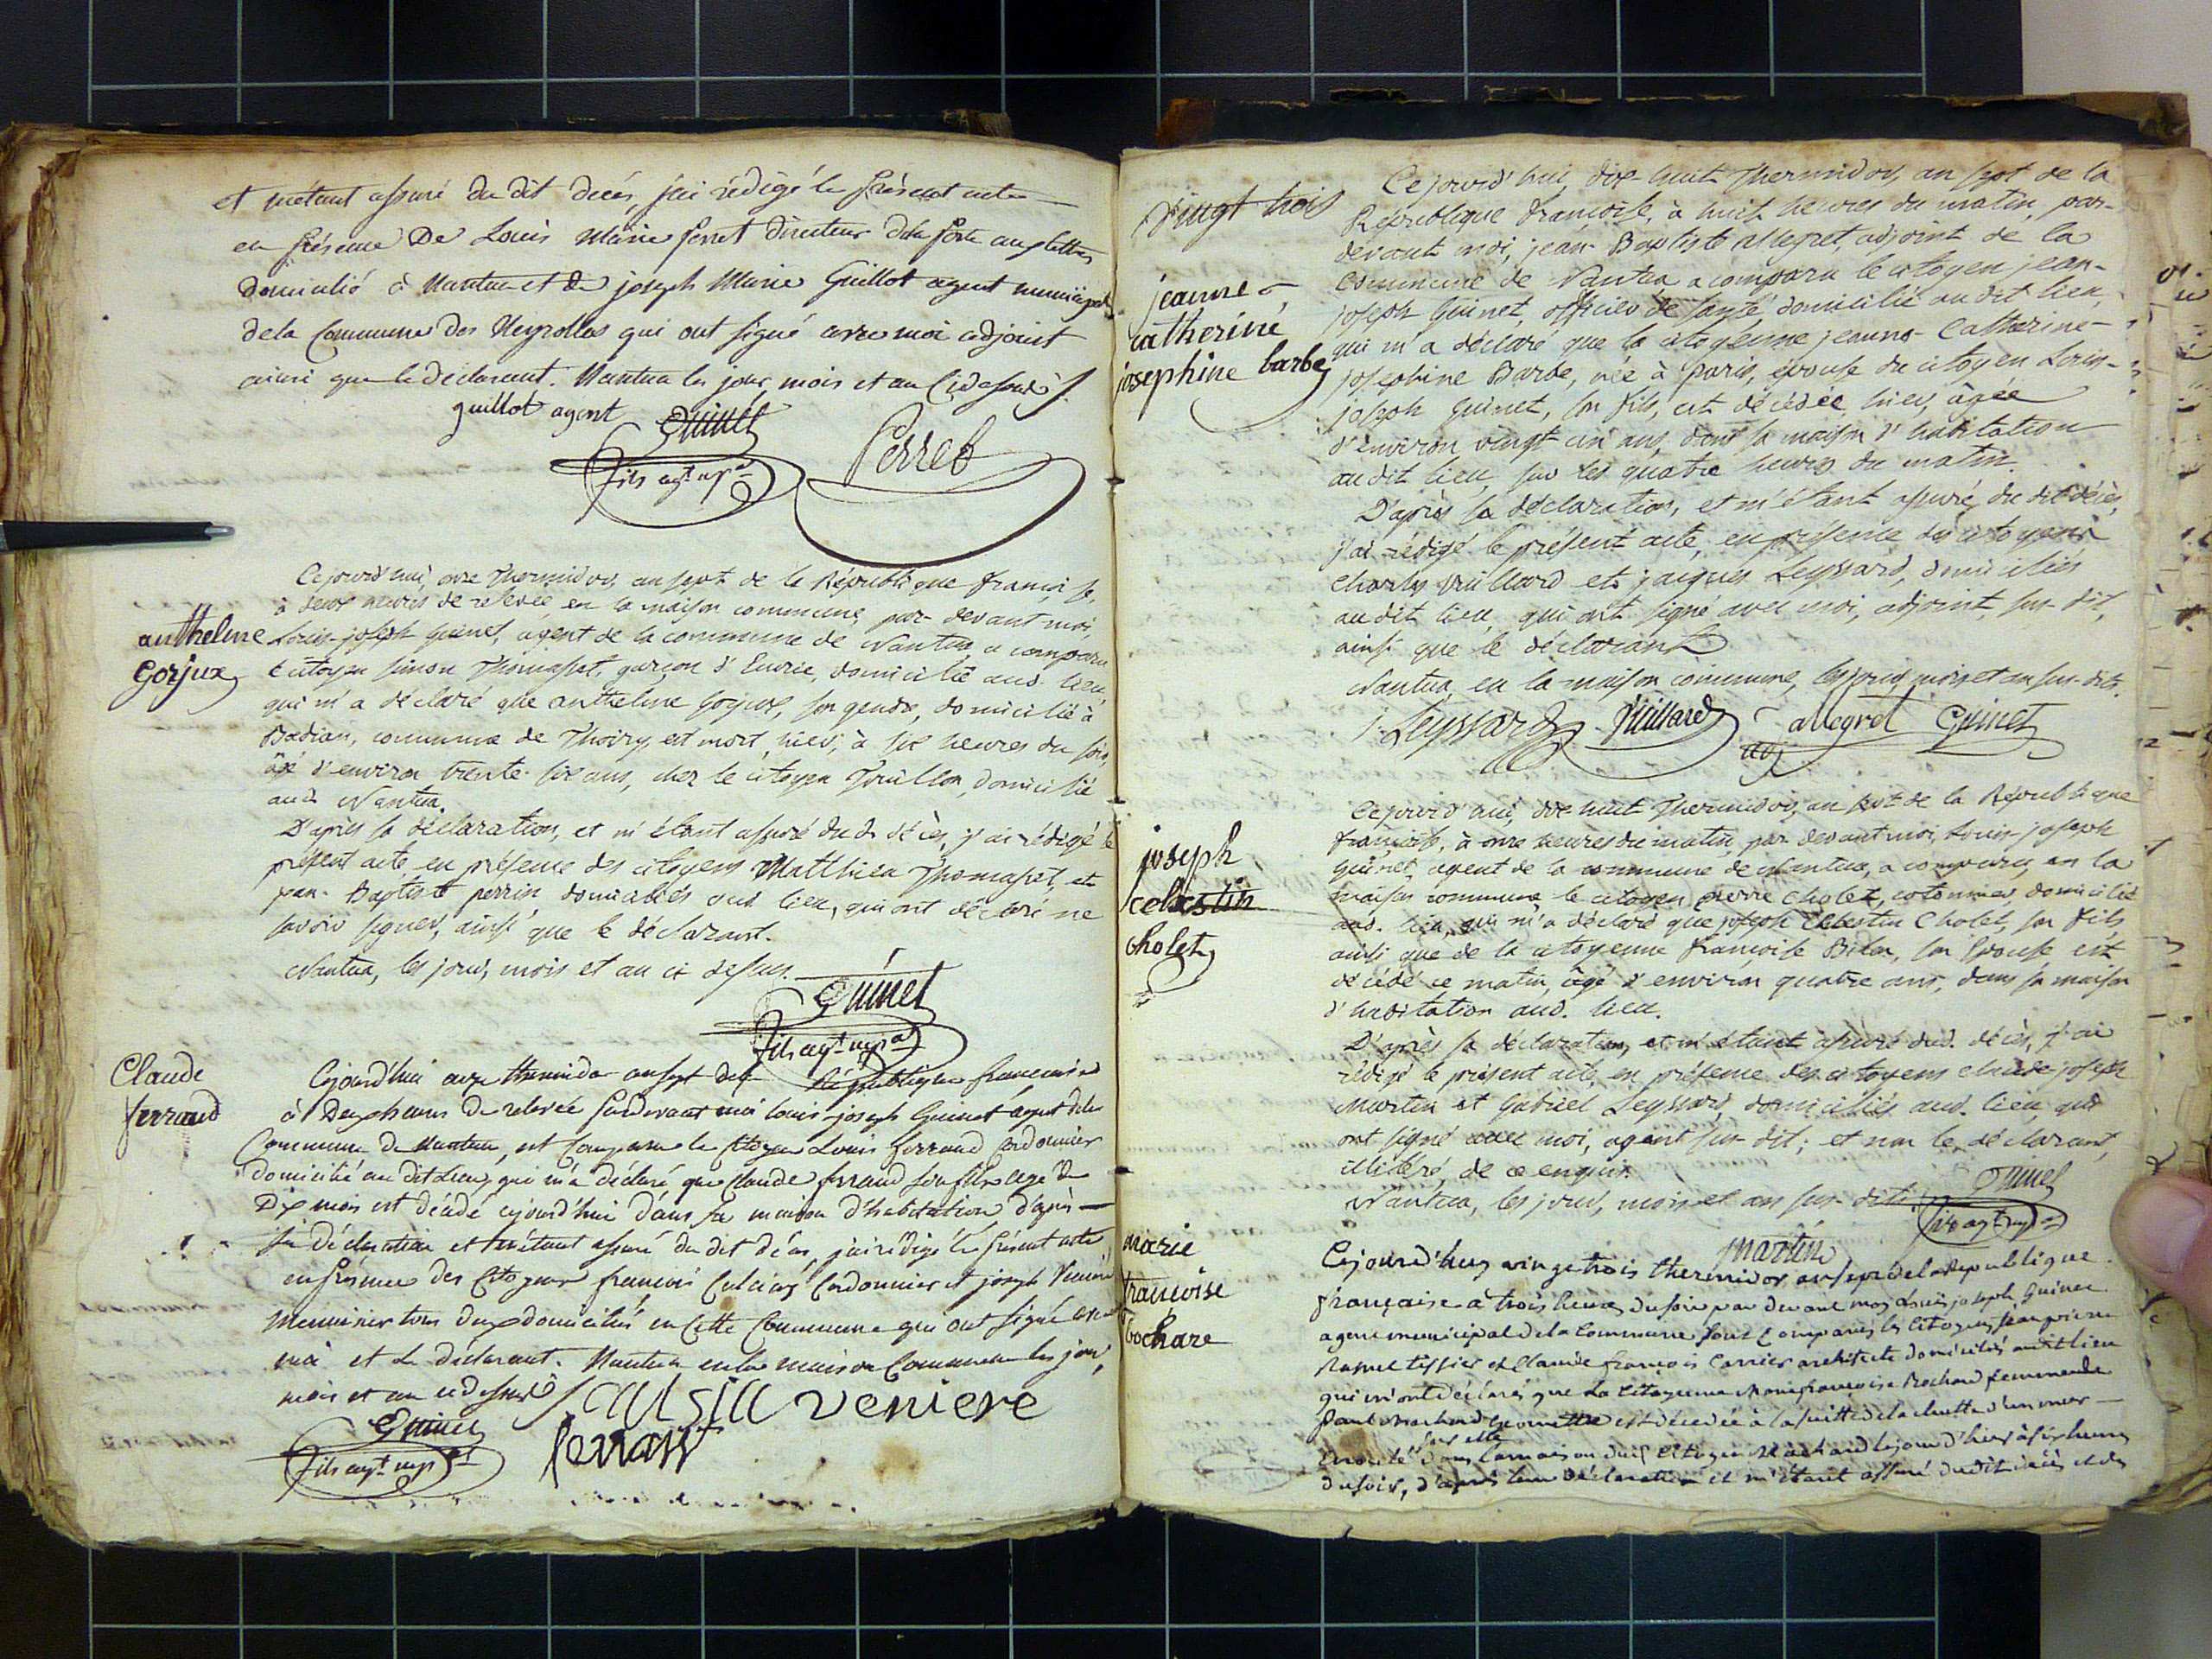 et m'étant assuré du dit décés, j'ai rédigé le présent acte
en présence De Louis Marie perret directeur de la poste aux lettres
domicilié à Nantua et de joseph Marie Guillot agent municipal
de la Commune des Neyrolles qui ont signé avec moi adjoint
ainsi que le déclarant. Nantua les jour, mois et an ci dessus
guillot agent Guinet Perret
fils agt mpal
Cejourd'hui, onze Thermidor, an sept de la République françoise,
à deux heures de relevée, en la maison commune, par-devant moi,
anthelme
Gorjux
Louis-joseph Guinet, agent de la commune de Nantua, a comparu
le citoyen simon Thomasset, garçon d'Ecurie, domicilié aud. lieu,
qui m'a déclaré que anthelme Gorjux, son gendre, domicilié à
Badian, commune de Thoiry, est mort, hier, à six heures du soir,
âgé d'environ trente-six ans, chez le citoyen Touillon, domicilié
aud. Nantua.
D'après sa déclaration, et m'étant assuré dud. décès, j'ai rédigé le
présent acte, en présence des citoyens Matthieu Thomasset, et
jean-Baptiste perrin, domiciliés aud. lieu, qui ont déclaré ne
savoir signer, ainsi que le déclarant.
Nantua, les jour, mois et an ci dessus.
Guinet
fils agt mpal
Claude
ferraud
Cejourd'hui onze thermidor an sept de la République françoise
à Deux heures De relevée pardevant moi louis-joseph Guinet agent de la
Commune De Nantua, est Comparu le Citoyen Louis ferraud Cordonnier
domicilié au dit Lieu, qui m'a déclaré que Claude ferraud son fils agé de
Dix mois est décédé cejourd'hui dans sa maison d'habitation d'après
sa déclaration et m'étant assuré du dit décés, j'ai rédigé le présent acte
en présence des Citoyens françois Cordonnier et joseph
Menuisier tous deux domiciliés en Cette Commune qui ont signé avec
moi et le déclarant. Nantua en la maison Commune les jour,
mois et an ci dessus
veniere
Guinet ferraut
fils agt mpal
vingt trois
jeanne
catherine
josephine barbe
Ce jourd'hui, dix-huit Thermidor, an sept de la
République françoise, à huit heures du matin, par-
devant moi, jean-Baptiste Allegret, adjoint de la
commune de Nantua a comparu le citoyen jean-
joseph Guinet, officier de santé domicilié au dit lieu,
qui m'a déclaré que la citoyenne jeanne-Catherine-
josephine Barbe, née à paris, épouse du citoyen Louis-
joseph Guinet, son fils, est décédée, hier, âgée
d'environ vingt-cinq ans, dans sa maison d'habitation
au dit lieu, sur les quatre heures du matin.
D'après sa déclaration, et m'étant assuré du dit décès,
j'ai rédigé le présent acte, en présence des citoyens
Charles Vuillard et jacques Leyssard, domiciliés
au dit lieu, qui ont signé avec moi, adjoint, sus-dit,
ainsi que le déclarant.
Nantua, en la maison commune, les jour, mois et an sus-dits.
j. Leyssard Vuillard allegret Guinet
adj
joseph
celestin
cholet
Cejourd'hui, dix-huit Thermidor, an sept de la République
françoise, à onze heures du matin, par-devant moi, Louis-joseph
Guinet, agent de la commune de Nantua, a comparu, en la
maison commune le citoyen pierre Cholet, cotonnier, domicilié
aud. lieu, qui m'a déclaré que joseph Celestin Cholet, son fils
ainsi que de la citoyenne françoise son Epouse est
décédé ce matin, âgé d'environ quatre ans, dans sa maison
d'habitation aud. lieu.
D'après sa déclaration, et m'étant assuré dud. décès, j'ai
rédigé le présent acte, en présence des citoyens claude-joseph
Martin et Gabriel Leyssard, domiciliés aud. lieu, qui
ont signé avec moi, agent sus-dit; et non le déclarant,
illitéré, de ce enquis.
Nantua, les jour, mois et an sus-dits
Guinet
fils agt mpal
martin
marie
françoise
bochare
Cejourd'huy vingt trois thermidor an sept de la Republique
française à trois heures du soir par devant moy Louis joseph Guinet
agent municipal de la Commune sont Comparus les Citoyens jean pierre
tissier et Claude françois Carrier architecte domiciliés audit lieu
qui m'ont déclaré que La Citoyenne Marie françoise Bochard femme de
paul est décedée à la suitte de la chutte d'un mur
Ecroulé sur elle dans la maison dud. Citoyen le jour d'hier à six heures
du soir, d'après leur Déclaration et m'étant assuré dudit décès et de